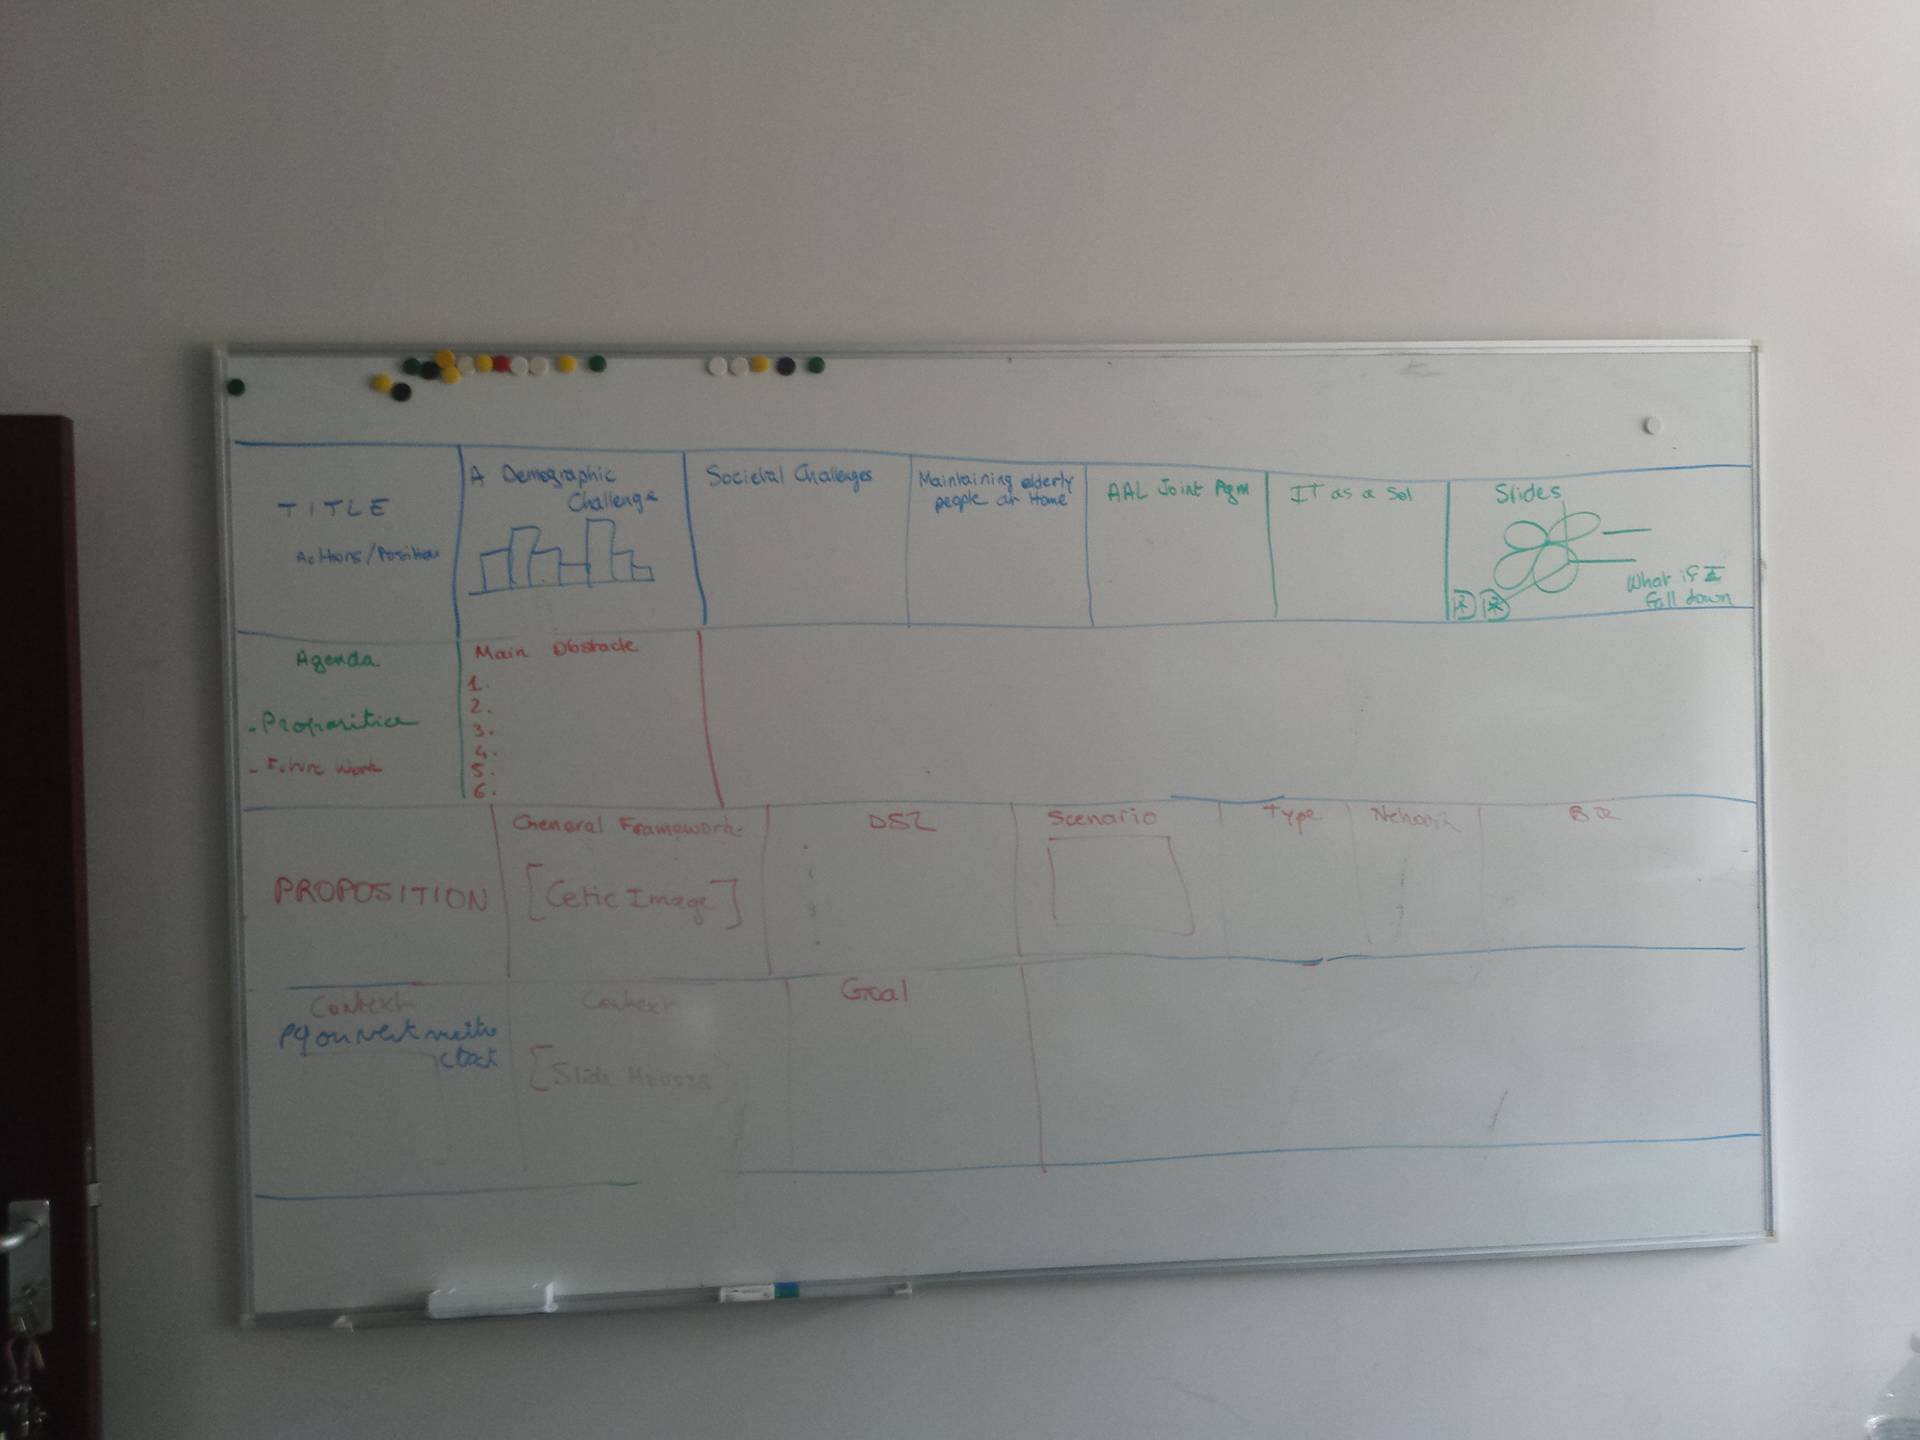 TITLE
Actions/Position
A Demographic
Challenge
Societal Challenges
Maintaining elderly
people at Home
AAL Joint Pgm
IT as a Sol
Slides
What if I
fall down
Agenda
- Proposition
- Future Work
Main Obstacle
1.
2.
3.
4.
5.
6.
PROPOSITION
General Framework
[Cetic Image]
DSL
Scenario
Type
Context
Context
[Slide
Goal